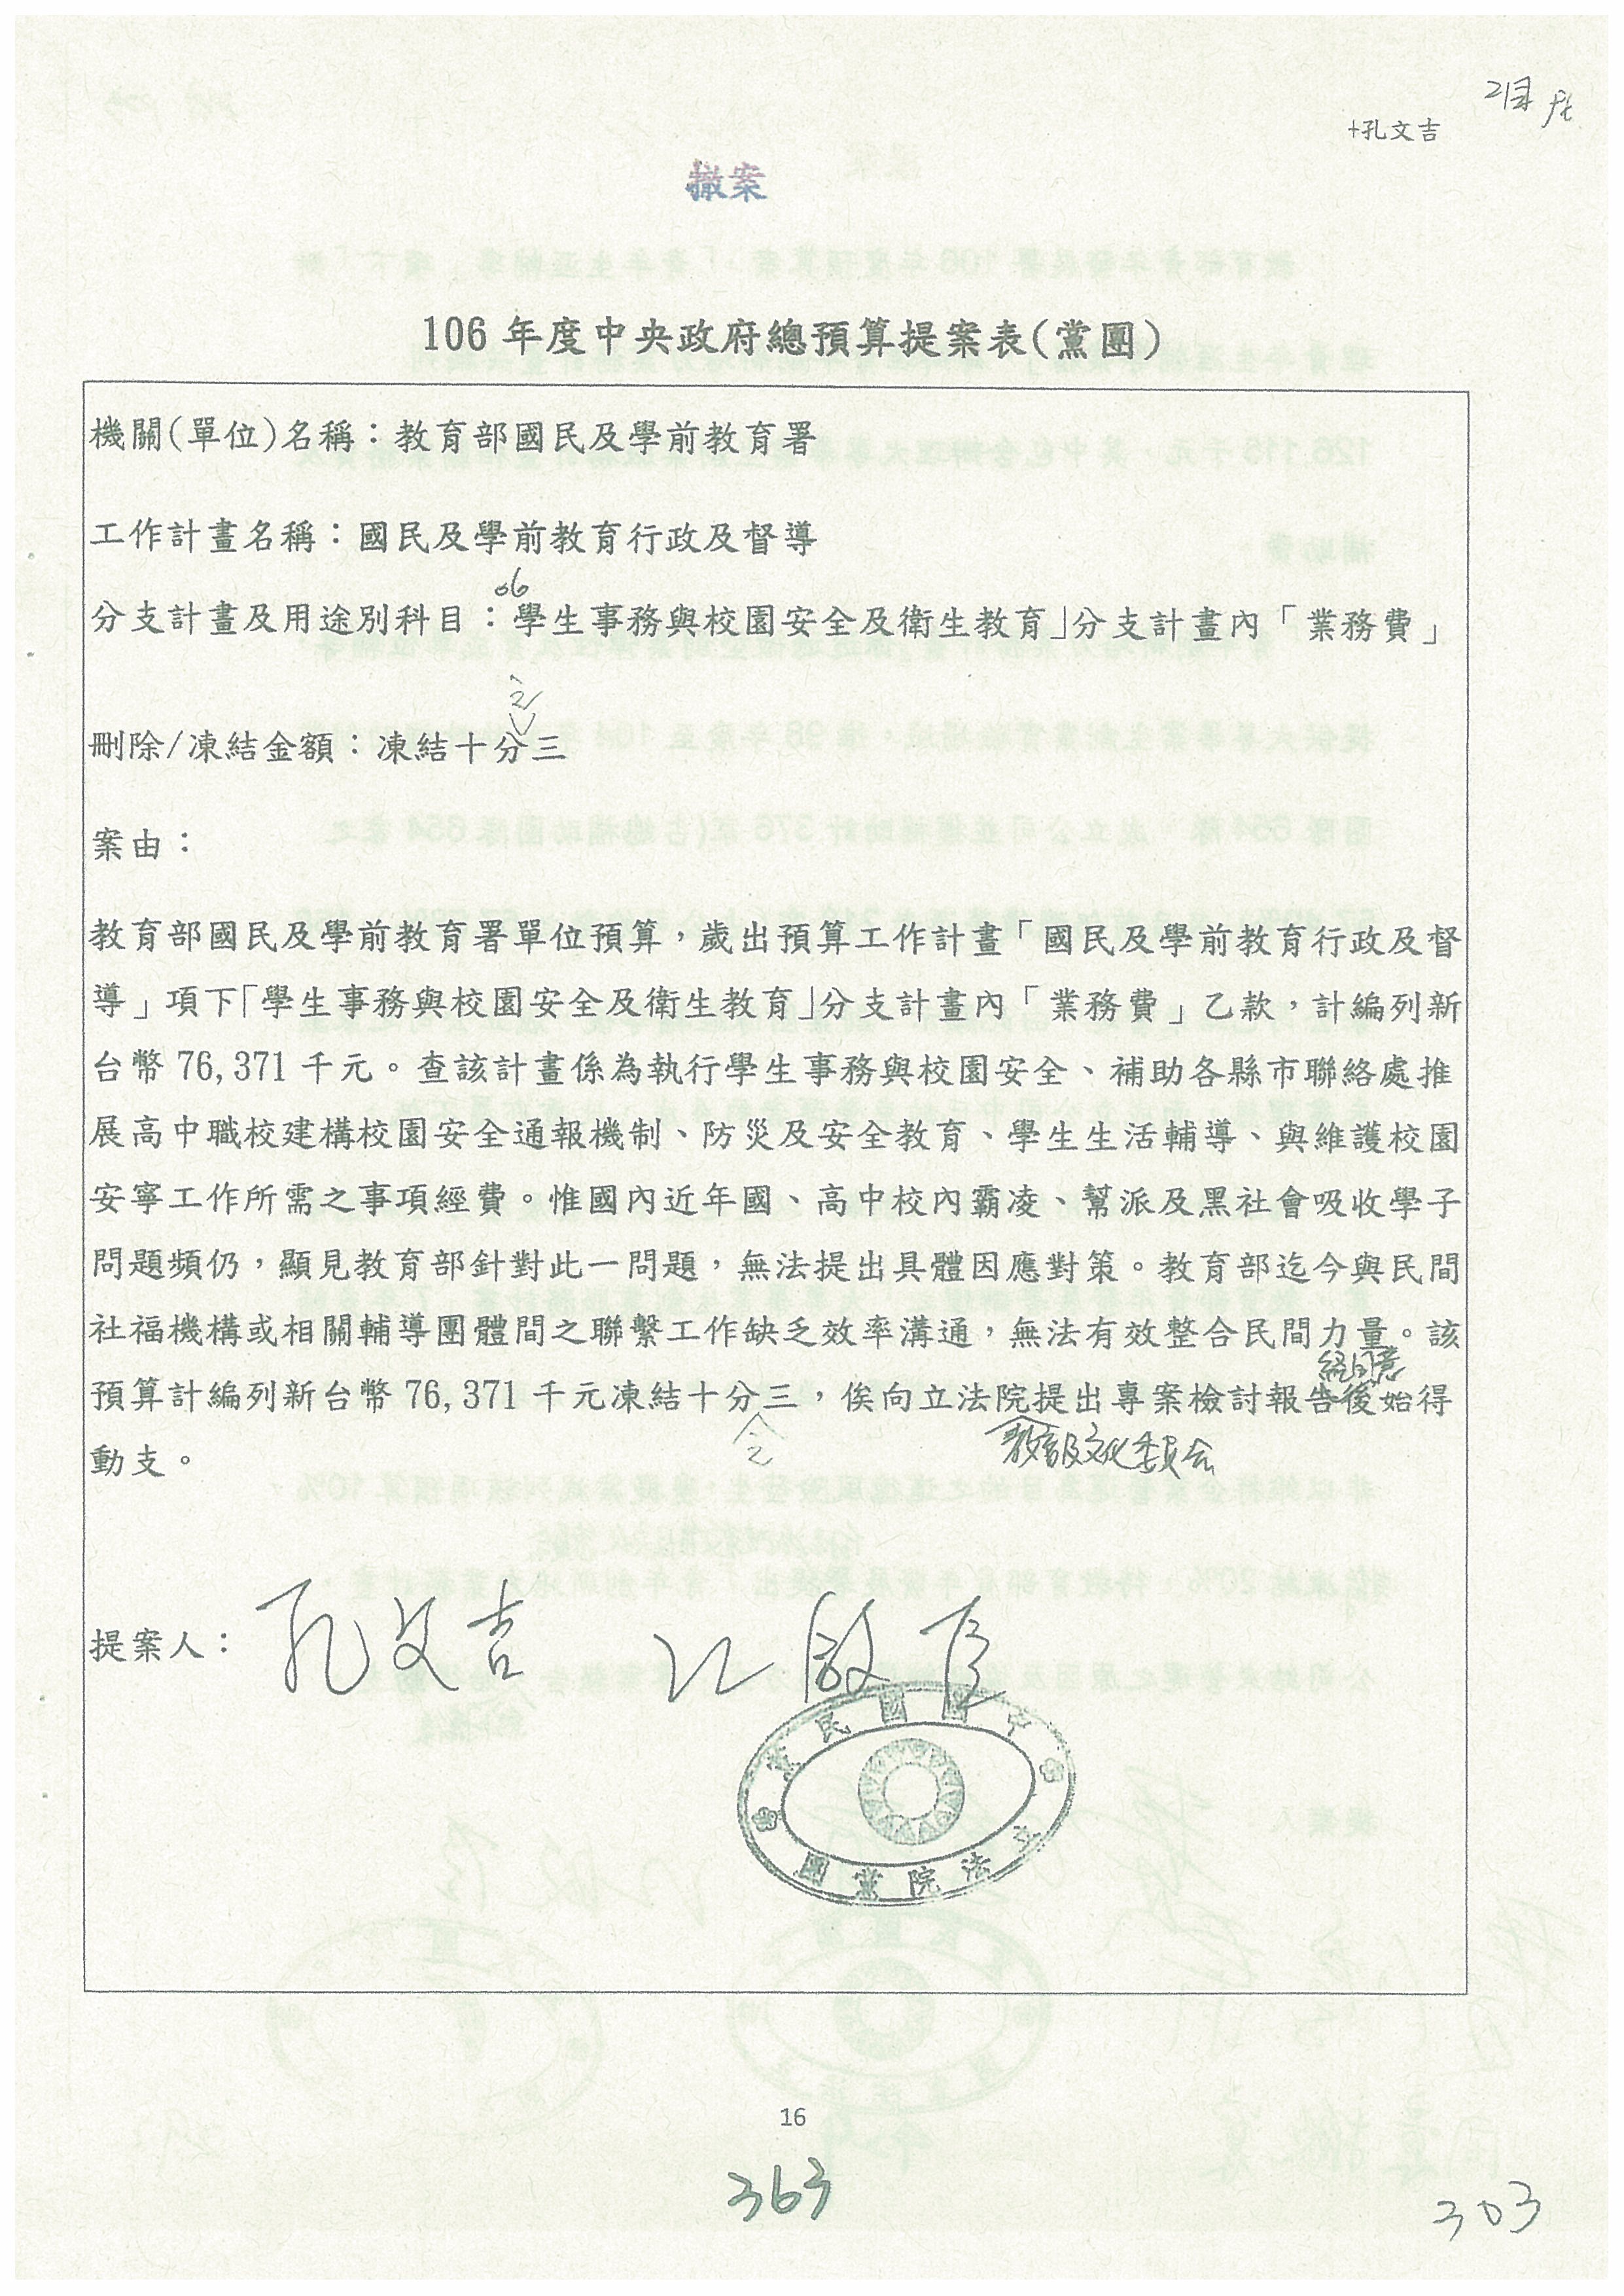 2目
+孔文吉
撤案
106 年度中央政府總預算提案表(黨團)
機關(單位)名稱：教育部國民及學前教育署
工作計畫名稱：國民及學前教育行政及督導
06
分支計畫及用途別科目：學生事務與校園安全及衛生教育」分支計畫內「業務費」
之
刪除/凍結金額：凍結十分三
案由：
教育部國民及學前教育署單位預算，歲出預算工作計畫「國民及學前教育行政及督
導」項下「學生事務與校園安全及衛生教育」分支計畫內「業務費」乙款，計編列新
台幣 76,371 千元。查該計畫係為執行學生事務與校園安全、補助各縣市聯絡處推
展高中職校建構校園安全通報機制、防災及安全教育、學生生活輔導、與維護校園
安寧工作所需之事項經費。惟國內近年國、高中校內霸凌、幫派及黑社會吸收學子
問題頻仍，顯見教育部針對此一問題，無法提出具體因應對策。教育部迄今與民間
社福機構或相關輔導團體間之聯繫工作缺乏效率溝通，無法有效整合民間力量。該
經同意
預算計編列新台幣 76,371 千元凍結十分三，俟向立法院提出專案檢討報告後始得
之
教育及文化委員會
動支。
提案人： 孔文吉 江啟臣
中國國民黨
立法院黨團
16
363
303